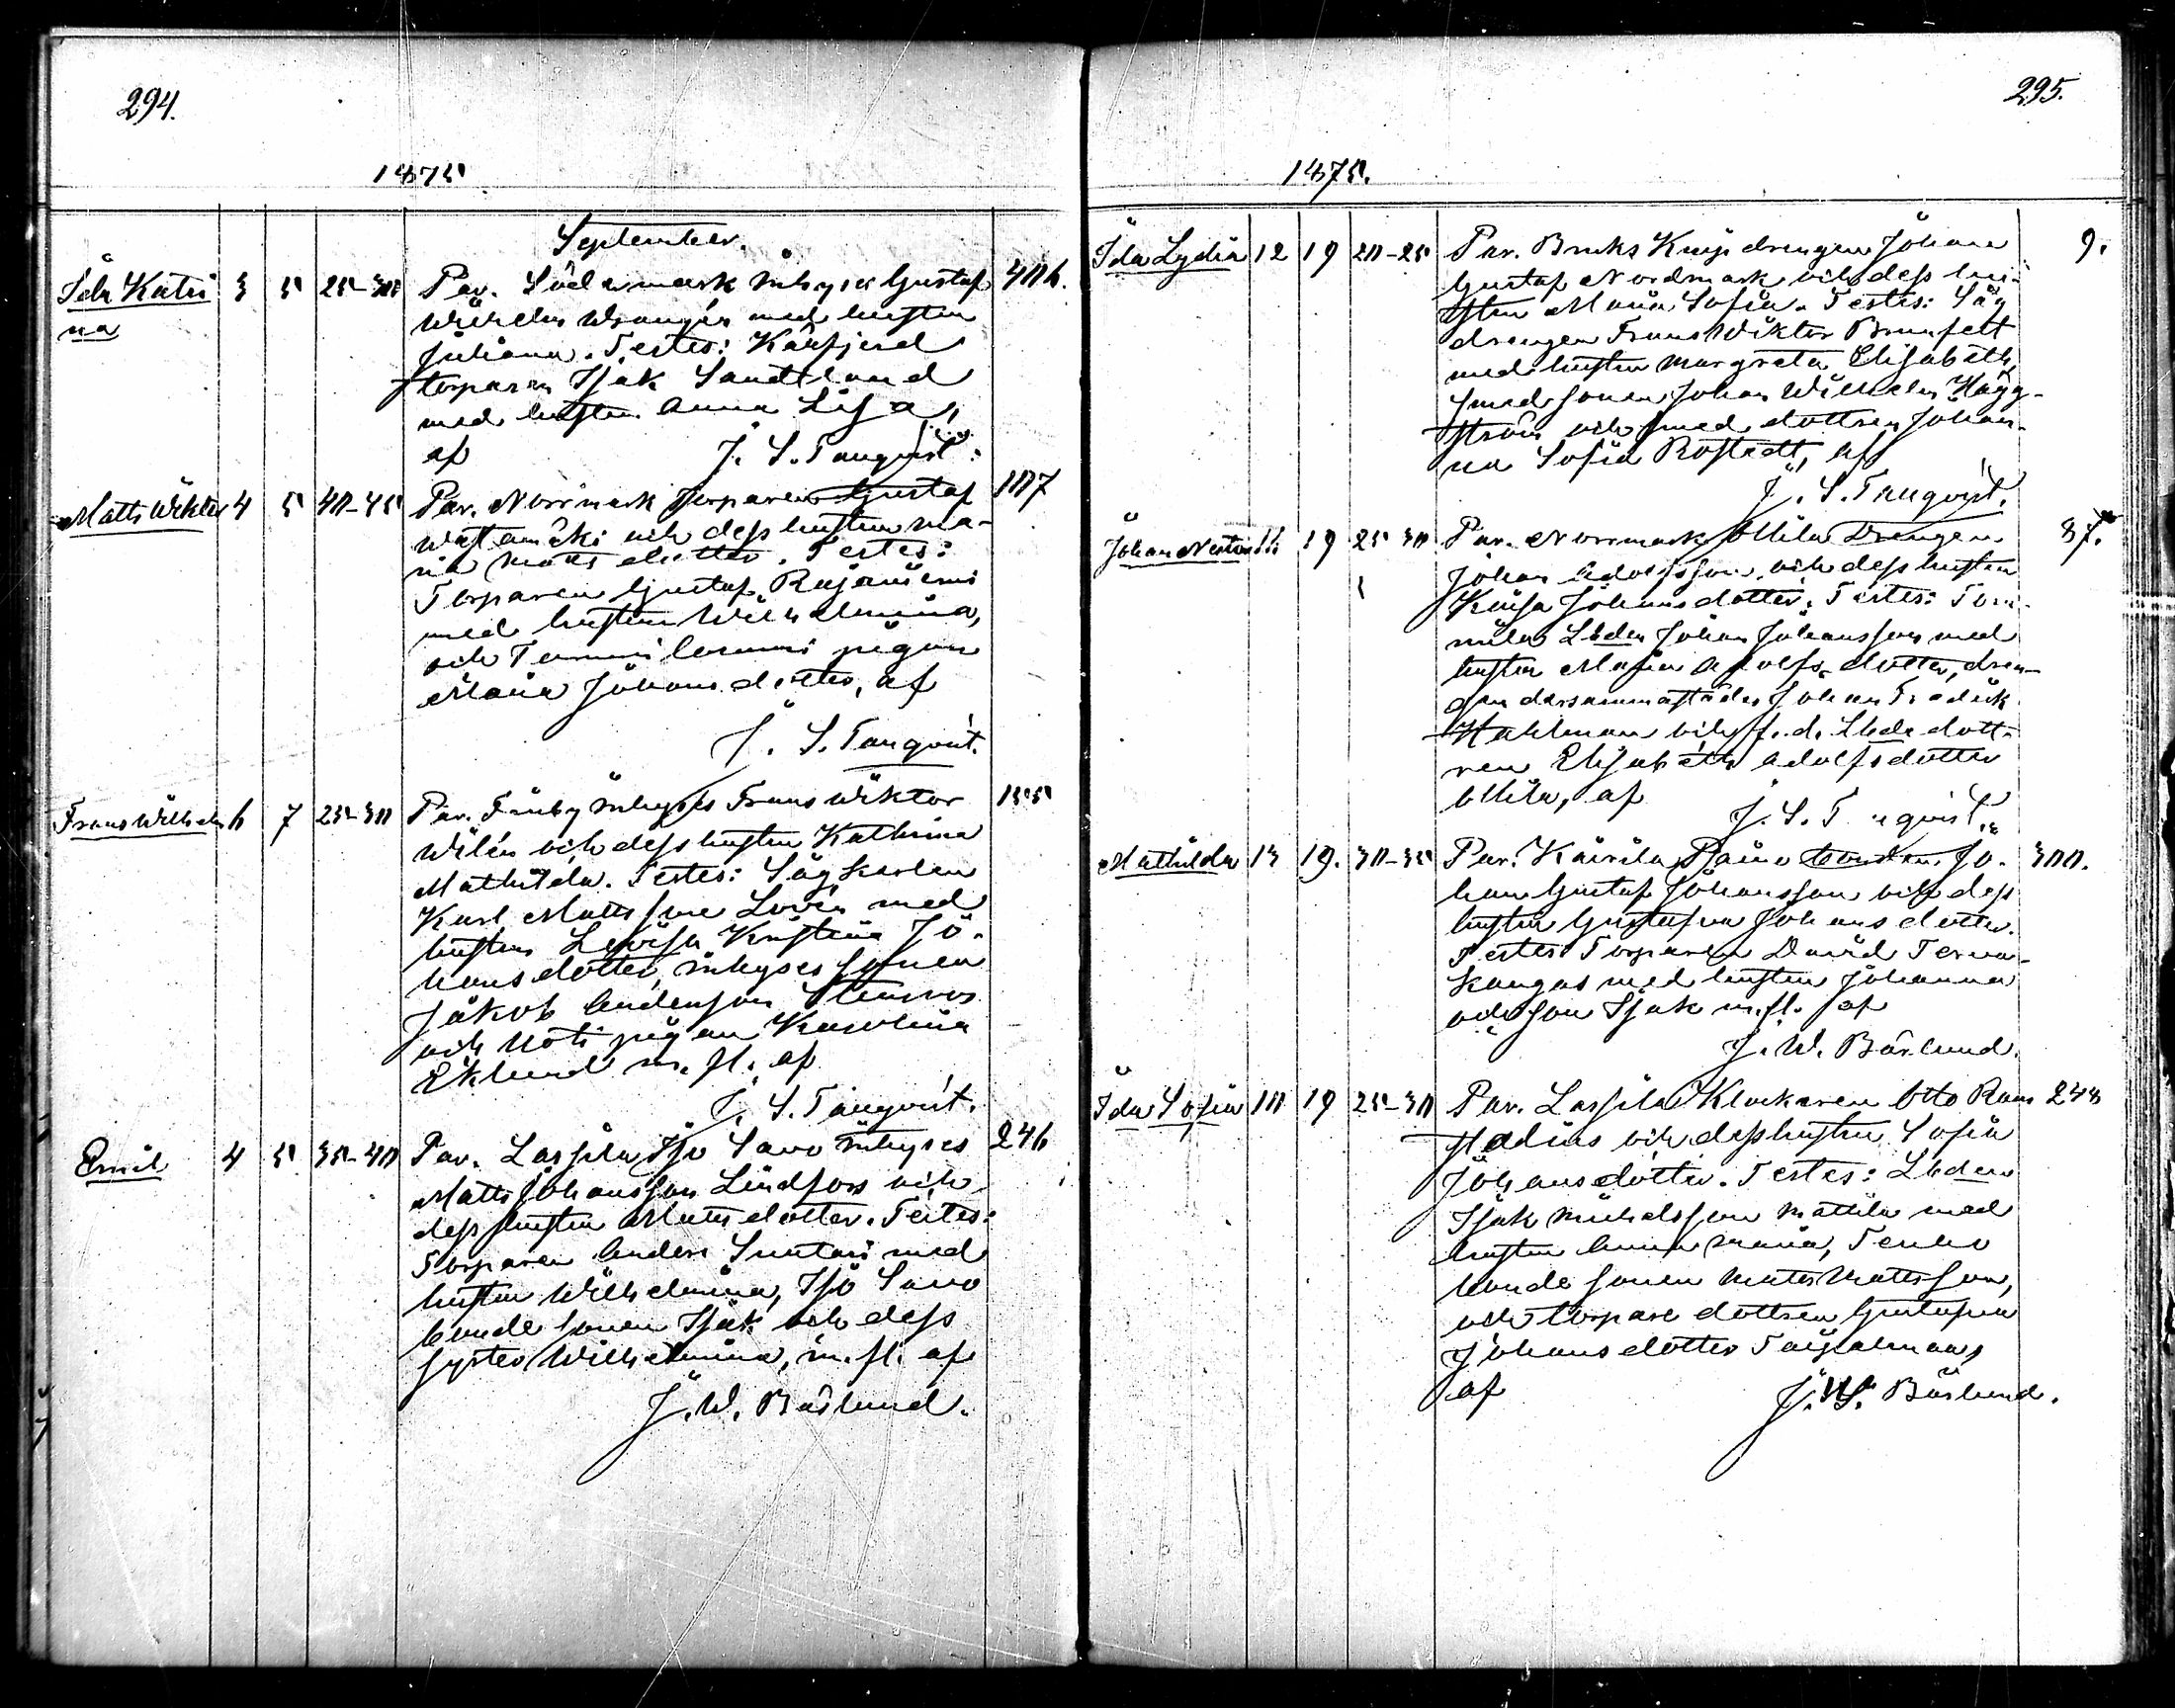 294.
1875
September.
Ida Katri 3 5 25-30 Par. Södermark inhyses Gustaf 306.
na Wilhelm Wrangén med hustru
Juliana. Testes: Kärfjerd
torparen Isak Sandstrand
med hustru Anna Lisa,
af J. S. Tanqvist.
Matts Wiktor 4 5 40-45 Par. Norrmark torparen Gustaf 107
och dess hustru Ma-
ria Mattsdotter. Testes:
Torparen Gustaf Rajaniemi
med hustru Wilhelmina,
och Tommi pigan
Maria Johansdotter, af
J. S. Tanqvist.
Frans Wilhelm 6 7 25-30 Par. Finby inhyses Frans Wiktor 155
Wilén och dess hustru Kathrina
Mathilda. Testes: Sågkarlen
Karl Mattsson Lovén med
hustru Lovisa Kristina Jo-
hansdotter, inhyses sonen
Jakob Andersson Stenroos
och pigan Karolina
Eklund m. fl. af
J. S. Tanqvist.
Emil 4 5 35-40 Par. Lassila Iso Savo inhyses 246
Matts Johansson Lindfors och
dess hustru Mattsdotter. Testes:
Torparen Anders Suntari med
hustru Wilhelmina, Iso Savo
bondesonen Isak och dess
syster Wilhelmina, m. fl. af
J. W. Bärlund.
295.
1875.
Ida Lydia 12 19 20-25 Par. Bruks drengen Johan 9.
Gustaf Nordmark och dess hu-
stru Maria Sofia. Testes: Såg
drengen Frans Wiktor Brunfelt
med hustru Margreta Elisabeth,
smedsonen Johan Wilhelm Hägg-
ström och smeddottren Johan-
na Sofia Rostedt, af
J. S. Tanqvist.
Johan Nestor 16 19 25 30 Par. Norrmark Ollila Drengen 37.
Johan Adolfsson och dess hustru
Kaisa Johansdotter. Testes: Tom-
mila Lbden Johan Johansson med
hustru Maria Adolfsdotter, dren-
gen dersammastädes Johan Fredrik
Hahlman och f. d. Lbdedott-
ren Elisabeth Adolfsdotter
Ollila, af J. S. Tanqvist.
Mathilda 13 19. 30-35 Par. Kairila Bonden Jo- 300.
han Gustaf Johansson och dess
hustru Gustafva Johansdotter.
Testes: Torparen David Terva-
kangas med hustru Johanna
och son Isak m. fl. af
J. W. Bärlund.
Ida Sofia 10 19 25-30 Par. Lassila Klockaren Otto Ram 248
stadius och dess hustru Sofia
Johansdotter. Testes: Lbden
Isak Michelsson Mattila med
hustru Anna Maria, Tenho
bondesonen Matts Mattsson,
och torpare dottren Gustafva
Johansdotter Taipalmaa,
af J. W. Bärlund.